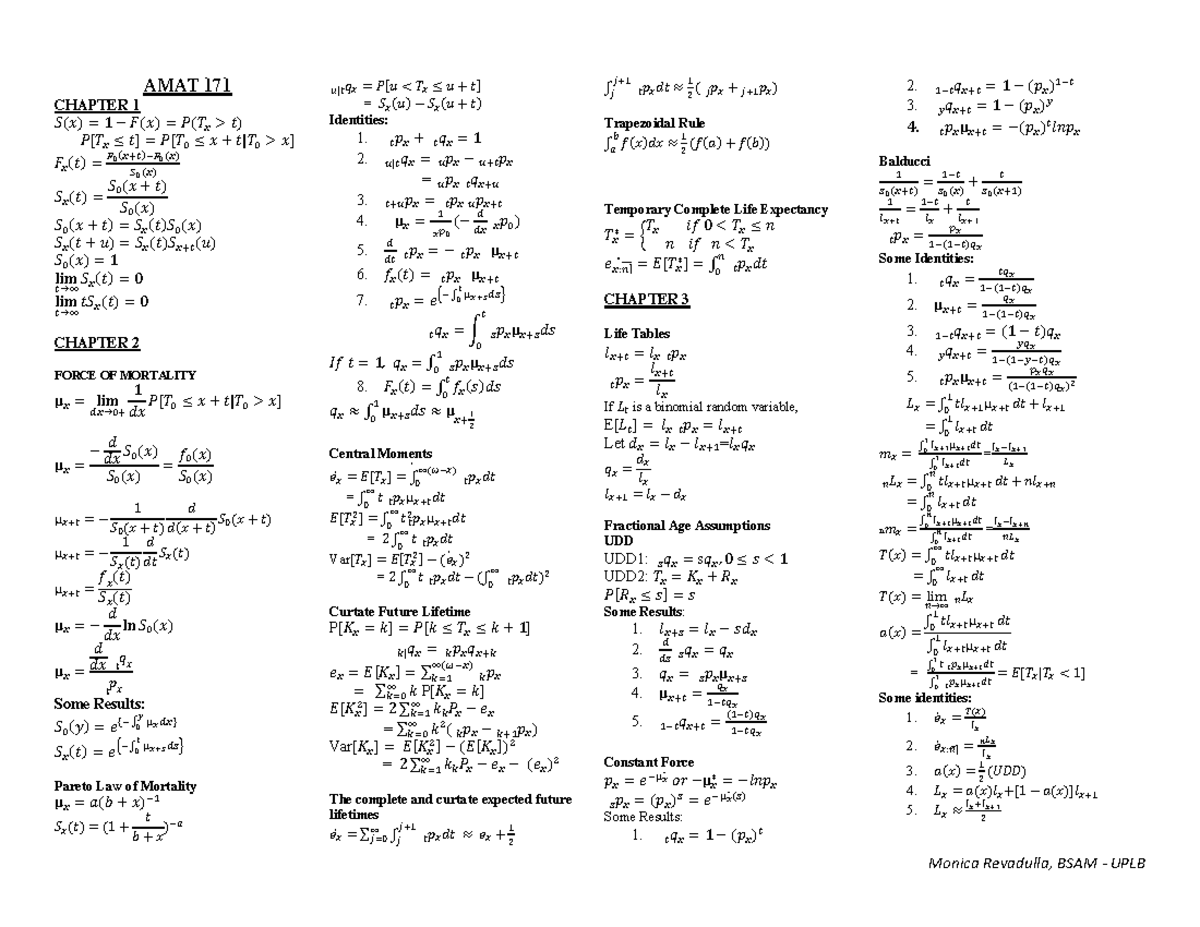 AMAT 171
CHAPTER 1
S(x) = 1 − F(x) = P(Tₓ > t)
P[Tₓ ≤ t] = P[T₀ ≤ x + t|T₀ > x]
Fₓ(t) = (F₀(x+t)−F₀(x))/S₀(x)
Sₓ(t) = S₀(x + t)/S₀(x)
S₀(x + t) = Sₓ(t)S₀(x)
Sₓ(t + u) = Sₓ(t)Sₓ₊ₜ(u)
S₀(x) = 1
lim_{t→∞} Sₓ(t) = 0
lim_{t→∞} tSₓ(t) = 0
CHAPTER 2
FORCE OF MORTALITY
μₓ = lim_{dx→0+} 1/dx P[T₀ ≤ x + t|T₀ > x]
μₓ = (−d/dx S₀(x))/S₀(x) = f₀(x)/S₀(x)
μₓ₊ₜ = − 1/S₀(x + t) d/d(x + t) S₀(x + t)
μₓ₊ₜ = − 1/Sₓ(t) d/dt Sₓ(t)
μₓ₊ₜ = fₓ(t)/Sₓ(t)
μₓ = − d/dx ln S₀(x)
μₓ = (d/dx ₜqₓ)/ₜpₓ
Some Results:
S₀(y) = e^{−∫₀^y μₓdx}
Sₓ(t) = e^{−∫₀^t μₓ₊ₛds}
Pareto Law of Mortality
μₓ = a(b + x)⁻¹
Sₓ(t) = (1 + t/(b + x))^−a
ᵤ|ₜqₓ = P[u < Tₓ ≤ u + t]
= Sₓ(u) − Sₓ(u + t)
Identities:
1. ₜpₓ + ₜqₓ = 1
2. ᵤ|ₜqₓ = ᵤpₓ − ᵤ₊ₜpₓ
= ᵤpₓ ₜqₓ₊ᵤ
3. ₜ₊ᵤpₓ = ₜpₓ ᵤpₓ₊ₜ
4. μₓ = 1/ₓp₀ (− d/dx ₓp₀)
5. d/dt ₜpₓ = − ₜpₓ μₓ₊ₜ
6. fₓ(t) = ₜpₓ μₓ₊ₜ
7. ₜpₓ = e^{−∫₀^t μₓ₊ₛds}
ₜqₓ = ∫₀^t ₛpₓμₓ₊ₛds
If t = 1, qₓ = ∫₀^1 ₛpₓμₓ₊ₛds
8. Fₓ(t) = ∫₀^t fₓ(s)ds
qₓ ≈ ∫₀^1 μₓ₊ₛds ≈ μ_{x+1/2}
Central Moments
e̊ₓ = E[Tₓ] = ∫₀^{∞(ω−x)} ₜpₓdt
= ∫₀^∞ t ₜpₓμₓ₊ₜdt
E[Tₓ²] = ∫₀^∞ t² ₜpₓμₓ₊ₜdt
= 2∫₀^∞ t ₜpₓdt
Var[Tₓ] = E[Tₓ²] − (e̊ₓ)²
= 2∫₀^∞ t ₜpₓdt − (∫₀^∞ ₜpₓdt)²
Curtate Future Lifetime
P[Kₓ = k] = P[k ≤ Tₓ ≤ k + 1]
ₖ|qₓ = ₖpₓqₓ₊ₖ
eₓ = E[Kₓ] = ∑_{k=1}^{∞(ω−x)} ₖpₓ
= ∑_{k=0}^∞ k P[Kₓ = k]
E[Kₓ²] = 2∑_{k=1}^∞ kₖPₓ − eₓ
= ∑_{k=0}^∞ k²(ₖpₓ − ₖ₊₁pₓ)
Var[Kₓ] = E[Kₓ²] − (E[Kₓ])²
= 2∑_{k=1}^∞ kₖPₓ − eₓ − (eₓ)²
The complete and curtate expected future
lifetimes
e̊ₓ = ∑_{j=0}^∞ ∫_j^{j+1} ₜpₓdt ≈ eₓ + 1/2
∫_j^{j+1} ₜpₓdt ≈ 1/2(ⱼpₓ + ⱼ₊₁pₓ)
Trapezoidal Rule
∫_a^b f(x)dx ≈ 1/2(f(a) + f(b))
Temporary Complete Life Expectancy
Tₓ* = {Tₓ if 0 < Tₓ ≤ n
n if n < Tₓ
e̊_{x:n|} = E[Tₓ*] = ∫₀^n ₜpₓdt
CHAPTER 3
Life Tables
lₓ₊ₜ = lₓ ₜpₓ
ₜpₓ = lₓ₊ₜ/lₓ
If Lₜ is a binomial random variable,
E[Lₜ] = lₓ ₜpₓ = lₓ₊ₜ
Let dₓ = lₓ − lₓ₊₁=lₓqₓ
qₓ = dₓ/lₓ
lₓ₊₁ = lₓ − dₓ
Fractional Age Assumptions
UDD
UDD1: ₛqₓ = sqₓ, 0 ≤ s < 1
UDD2: Tₓ = Kₓ + Rₓ
P[Rₓ ≤ s] = s
Some Results:
1. lₓ₊ₛ = lₓ − sdₓ
2. d/ds ₛqₓ = qₓ
3. qₓ = ₛpₓμₓ₊ₛ
4. μₓ₊ₜ = qₓ/(1−tqₓ)
5. ₁₋ₜqₓ₊ₜ = (1−t)qₓ/(1−tqₓ)
Constant Force
pₓ = e^{−μₓ*} or −μₓ* = −lnpₓ
ₛpₓ = (pₓ)^s = e^{−μₓ*(s)}
Some Results:
1. ₜqₓ = 1 − (pₓ)^t
2. ₁₋ₜqₓ₊ₜ = 1 − (pₓ)^{1−t}
3. _yqₓ₊ₜ = 1 − (pₓ)^y
4. ₜpₓμₓ₊ₜ = −(pₓ)^t lnpₓ
Balducci
1/s₀(x+t) = (1−t)/s₀(x) + t/s₀(x+1)
1/lₓ₊ₜ = (1−t)/lₓ + t/lₓ₊₁
ₜpₓ = pₓ/(1−(1−t)qₓ)
Some Identities:
1. ₜqₓ = tqₓ/(1−(1−t)qₓ)
2. μₓ₊ₜ = qₓ/(1−(1−t)qₓ)
3. ₁₋ₜqₓ₊ₜ = (1 − t)qₓ
4. _yqₓ₊ₜ = yqₓ/(1−(1−y−t)qₓ)
5. ₜpₓμₓ₊ₜ = pₓqₓ/(1−(1−t)qₓ)²
Lₓ = ∫₀^1 tlₓ₊₁μₓ₊ₜ dt + lₓ₊₁
= ∫₀^1 lₓ₊ₜ dt
mₓ = ∫₀^1 lₓ₊₁μₓ₊ₜdt/∫₀^1 lₓ₊ₜdt = (lₓ−lₓ₊₁)/Lₓ
ₙLₓ = ∫₀^n tlₓ₊ₜμₓ₊ₜ dt + nlₓ₊ₙ
= ∫₀^n lₓ₊ₜ dt
ₙmₓ = ∫₀^n lₓ₊ₜμₓ₊ₜdt/∫₀^n lₓ₊ₜdt = (lₓ−lₓ₊ₙ)/ₙLₓ
T(x) = ∫₀^∞ tlₓ₊ₜμₓ₊ₜ dt
= ∫₀^∞ lₓ₊ₜ dt
T(x) = lim_{n→∞} ₙLₓ
a(x) = ∫₀^1 tlₓ₊ₜμₓ₊ₜ dt/∫₀^1 lₓ₊ₜμₓ₊ₜ dt
= ∫₀^1 t ₜpₓμₓ₊ₜdt/∫₀^1 ₜpₓμₓ₊ₜdt = E[Tₓ|Tₓ < 1]
Some identities:
1. e̊ₓ = T(x)/lₓ
2. e̊_{x:n|} = ₙLₓ/lₓ
3. a(x) = 1/2 (UDD)
4. Lₓ = a(x)lₓ+[1 − a(x)]lₓ₊₁
5. Lₓ ≈ (lₓ+lₓ₊₁)/2
Monica Revadulla, BSAM - UPLB